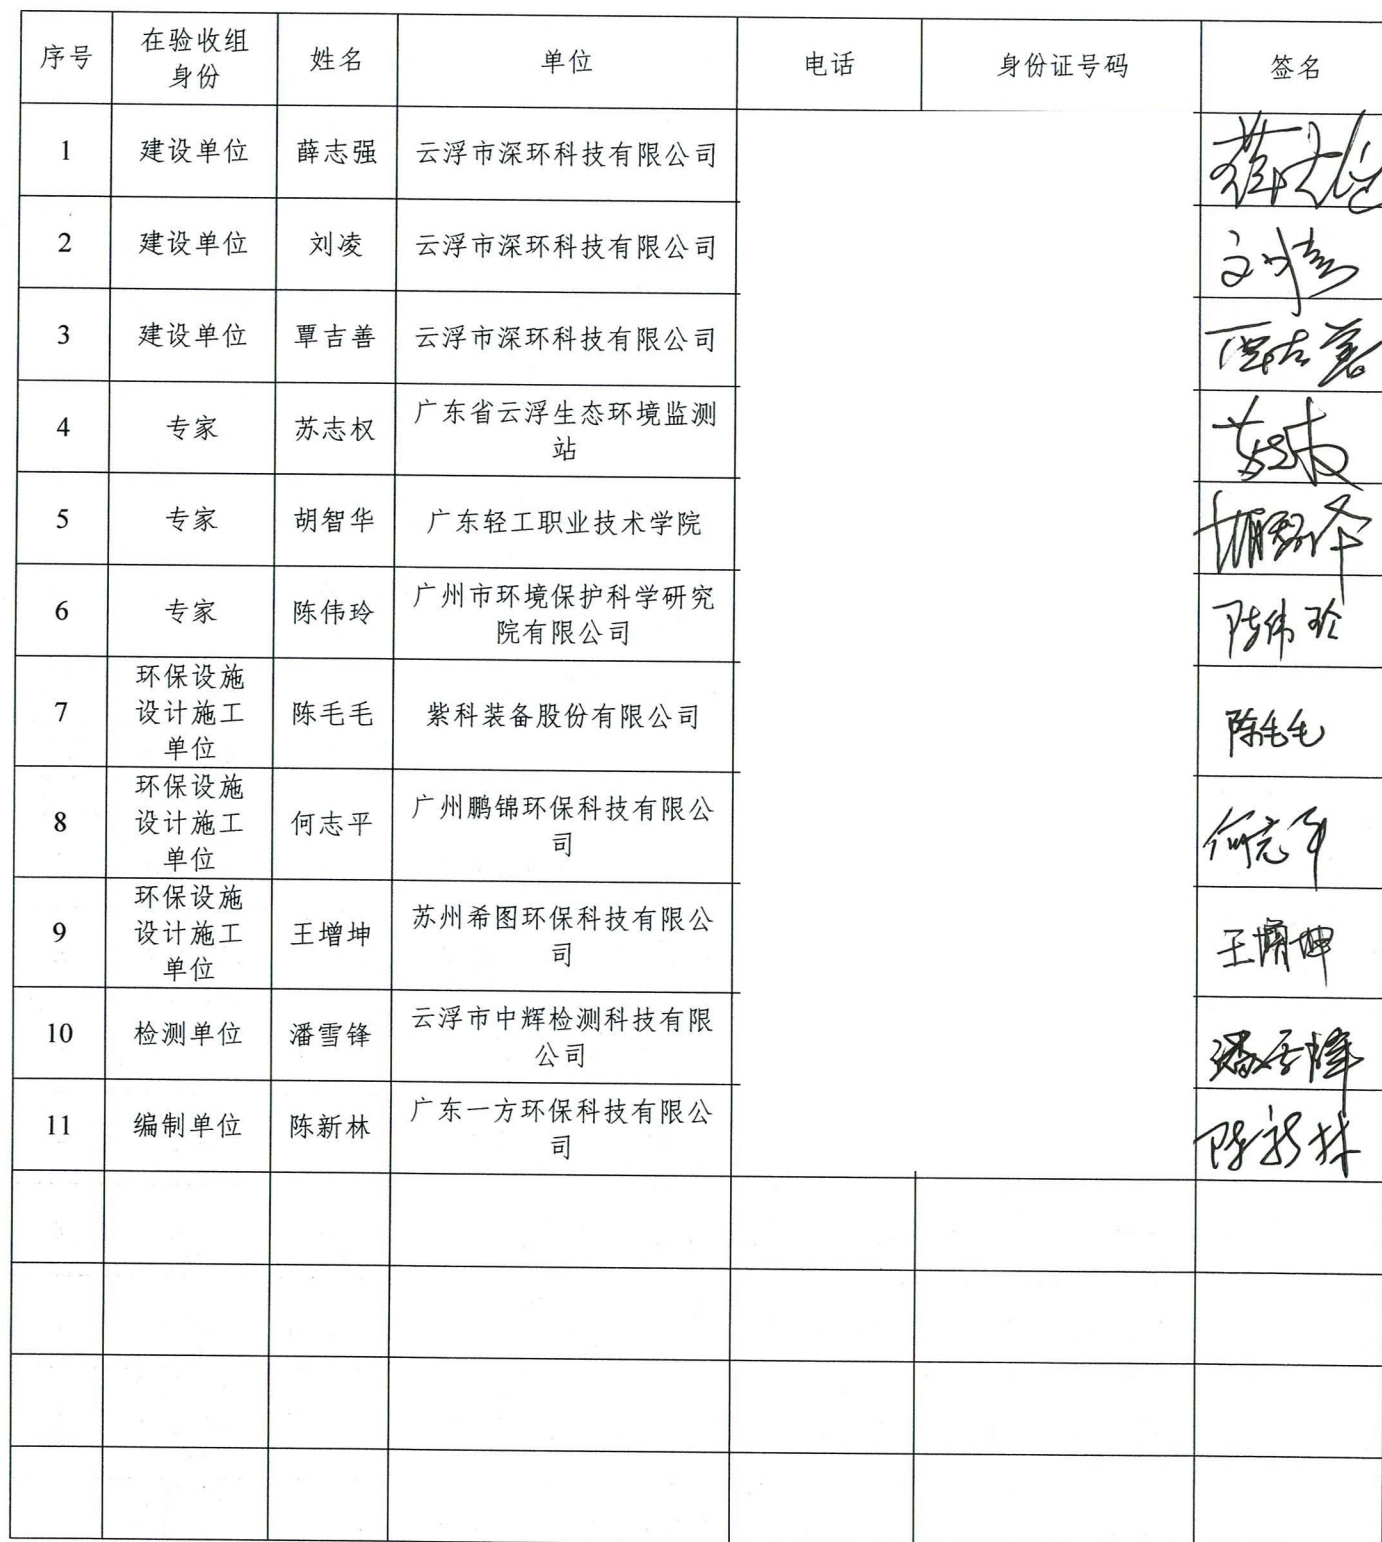 序号 在验收组身份 姓名 单位 电话 身份证号码 签名
1 建设单位 薛志强 云浮市深环科技有限公司
2 建设单位 刘凌 云浮市深环科技有限公司
3 建设单位 覃吉善 云浮市深环科技有限公司 覃吉善
4 专家 苏志权 广东省云浮生态环境监测站
5 专家 胡智华 广东轻工职业技术学院 胡智华
6 专家 陈伟玲 广州市环境保护科学研究院有限公司 陈伟玲
7 环保设施设计施工单位 陈毛毛 紫科装备股份有限公司 陈毛毛
8 环保设施设计施工单位 何志平 广州鹏锦环保科技有限公司 何志平
9 环保设施设计施工单位 王增坤 苏州希图环保科技有限公司 王增坤
10 检测单位 潘雪锋 云浮市中辉检测科技有限公司 潘雪锋
11 编制单位 陈新林 广东一方环保科技有限公司 陈新林